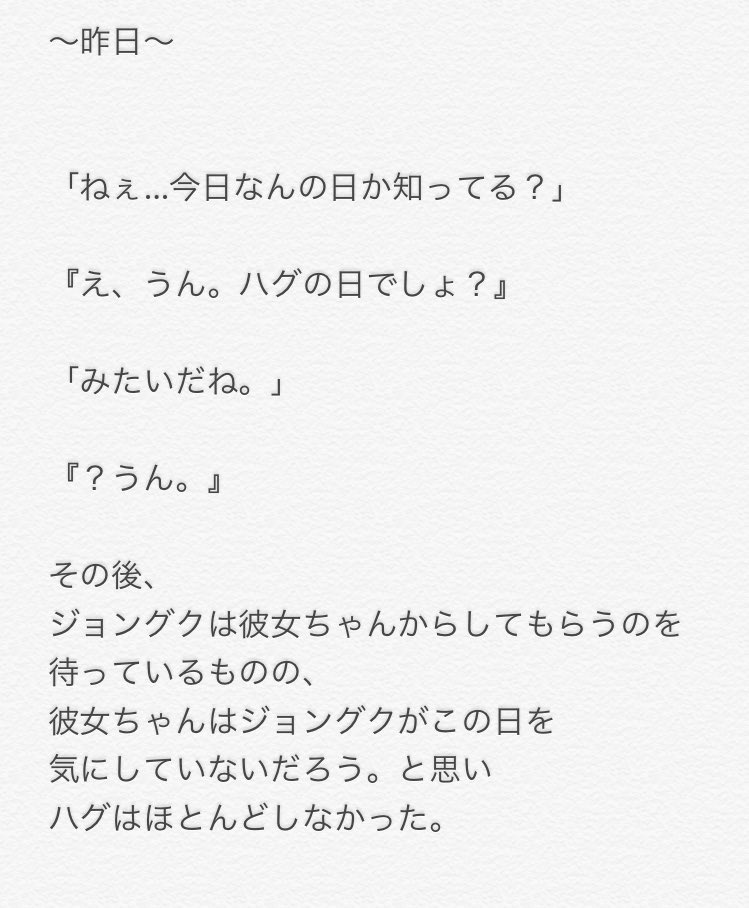 〜昨日〜
「ねぇ...今日なんの日か知ってる？」
『え、うん。ハグの日でしょ？』
「みたいだね。」
『？うん。』
その後、
ジョングクは彼女ちゃんからしてもらうのを
待っているものの、
彼女ちゃんはジョングクがこの日を
気にしていないだろう。と思い
ハグはほとんどしなかった。